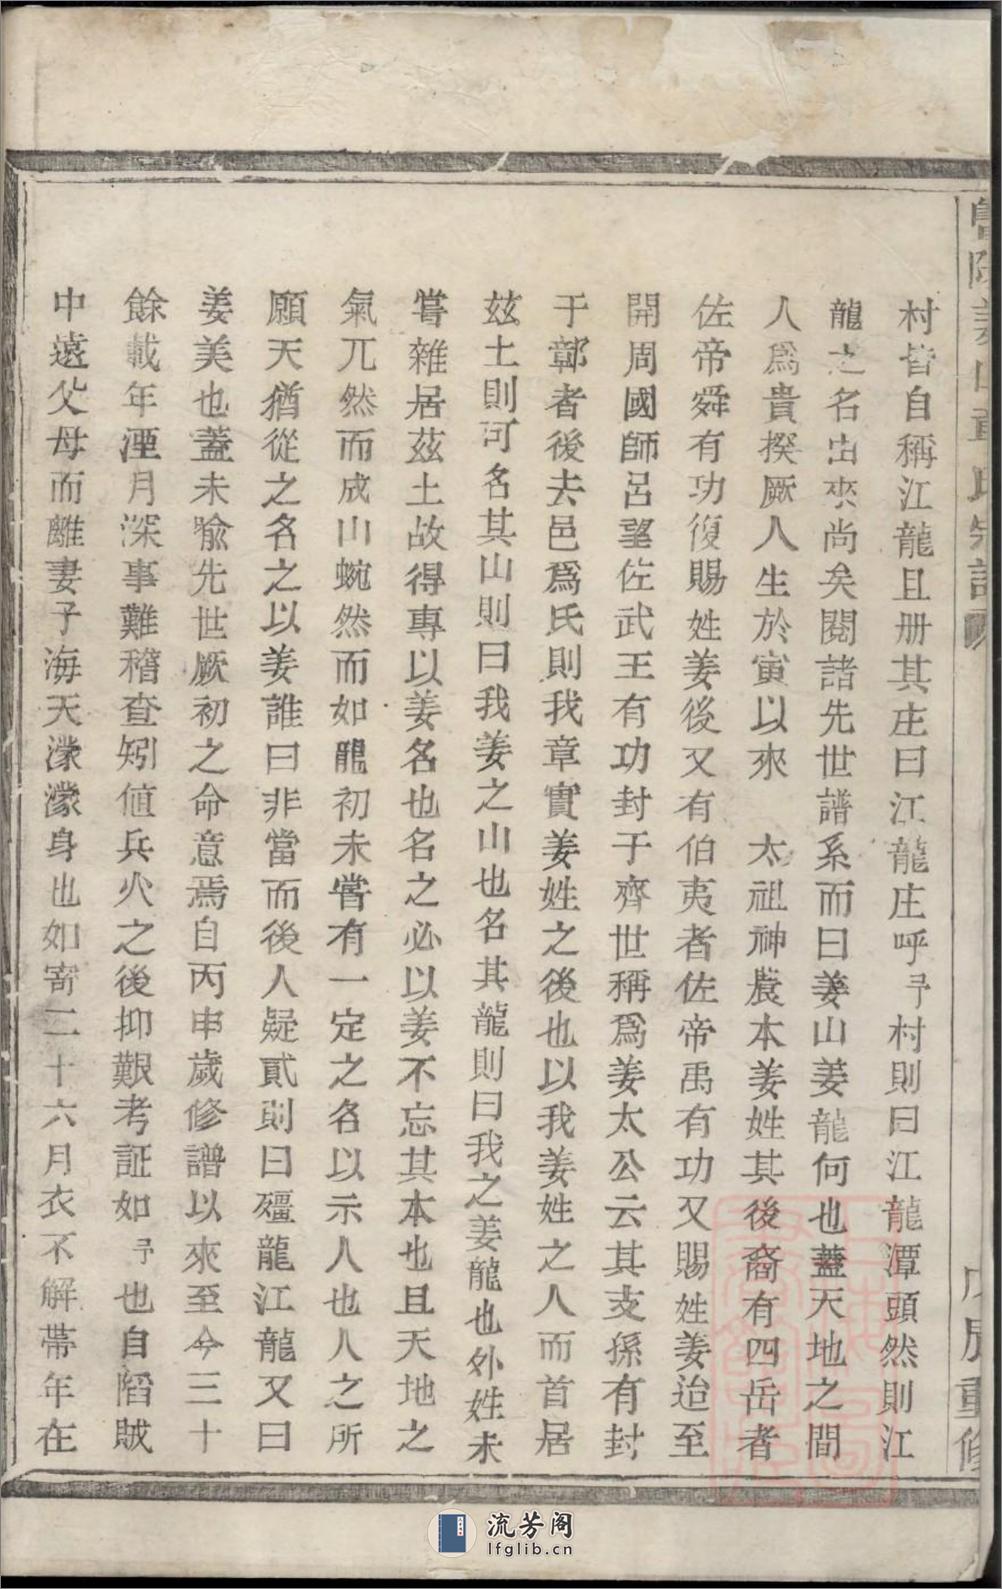 村皆自稱江龍且册其庄曰江龍庄呼予村則曰江龍潭頭然則江
龍之名出來尚矣閱諸先世譜系而曰姜山姜龍何也蓋天地之間
人爲貴揆厥人生於寅以來　太祖神農本姜姓其後裔有四岳者
佐帝舜有功復賜姓姜後又有伯夷者佐帝禹有功又賜姓姜迨至
開周國師呂望佐武王有功封于齊世稱爲姜太公云其支孫有封
于鄣者後去邑爲氏則我章實姜姓之後也以我姜姓之人而首居
茲土則可名其山則曰我姜之山也名其龍則曰我之姜龍也外姓未
嘗雜居茲土故得專以姜名也名之必以姜不忘其本也且天地之
氣兀然而成山蜿然而如龍初未嘗有一定之名以示人也人之所
願天猶從之名之以姜誰曰非當而後人疑貳則曰殭龍江龍又曰
姜美也蓋未喻先世厥初之命意焉自丙申歲修譜以來至今三十
餘載年湮月深事難稽查矧値兵火之後抑艱考証如予也自陷賊
中遠父母而離妻子海天濛濛身也如寄二十六月衣不解帶年在
姜山章氏宗譜
戊辰重修
流芳阁
lfglib.cn